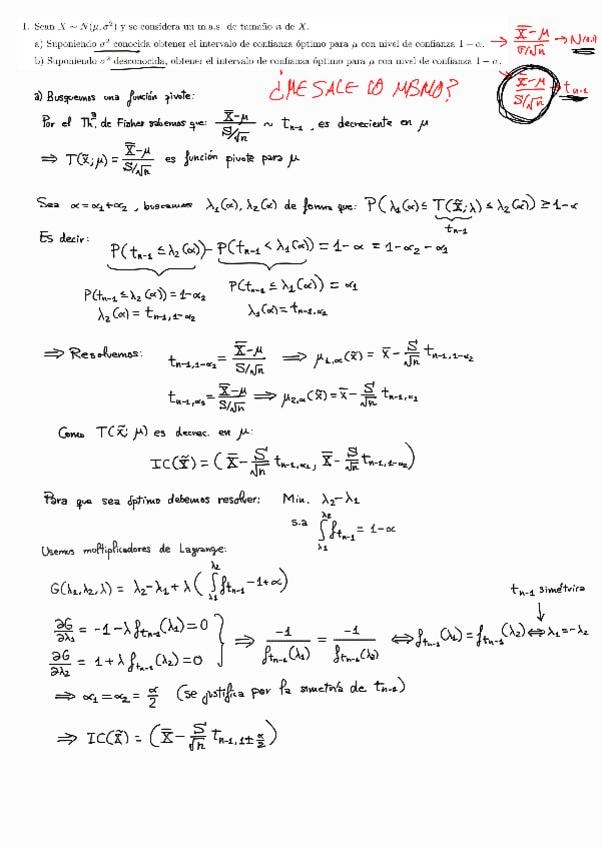 1. Sean X ~ N(μ, σ²) y se considera un m.a.s. de tamaño n de X.
a) Suponiendo σ² conocida obtener el intervalo de confianza óptimo para μ con nivel de confianza 1 − α. → (X̄-μ)/(σ/√n) → N(0,1)
b) Suponiendo σ² desconocida, obtener el intervalo de confianza óptimo para μ con nivel de confianza 1 − α. → (X̄-μ)/(S/√n) → t_{n-1}
¿ME SALE LO MISMO?
a) Busquemos una función pivote:
Por el Th. de Fisher sabemos que: (X̄-μ)/(S/√n) ~ t_{n-1}, es decreciente en μ
⇒ T(x̃;μ) = (X̄-μ)/(S/√n) es función pivote para μ
Sea α=α₁+α₂, buscamos λ₁(α), λ₂(α) de forma que: P(λ₁(α) ≤ T(x̃;λ) ≤ λ₂(α)) ≥ 1-α
t_{n-1}
Es decir: P(t_{n-1} ≤ λ₂(α)) - P(t_{n-1} < λ₁(α)) = 1-α = 1-α₂-α₁
P(t_{n-1} ≤ λ₂(α)) = 1-α₂ P(t_{n-1} ≤ λ₁(α)) = α₁
λ₂(α) = t_{n-1,1-α₂} λ₁(α) = t_{n-1,α₂}
⇒ Resolvemos: t_{n-1,1-α₂} = (X̄-μ)/(S/√n) ⇒ μ_{1,α}(x̃) = x̄ - S/√n t_{n-1,1-α₂}
t_{n-1,α₁} = (X̄-μ)/(S/√n) ⇒ μ_{2,α}(x̃) = x̄ - S/√n t_{n-1,α₁}
Como T(x̃;μ) es decrec. en μ:
IC(x̃) = (X̄ - S/√n t_{n-1,α₁}, X̄ - S/√n t_{n-1,1-α₂})
Para que sea óptimo debemos resolver: Min. λ₂-λ₁
s.a ∫_{λ₁}^{λ₂} f_{t_{n-1}} = 1-α
Usemos multiplicadores de Lagrange:
G(λ₁,λ₂,λ) = λ₂-λ₁+λ(∫_{λ₁}^{λ₂} f_{t_{n-1}} -1+α)
t_{n-1} simétrica
∂G/∂λ₁ = -1-λ f_{t_{n-1}}(λ₁) = 0
∂G/∂λ₂ = 1+λ f_{t_{n-1}}(λ₂) = 0
⇒ -1/f_{t_{n-1}}(λ₁) = -1/f_{t_{n-1}}(λ₂) ⇔ f_{t_{n-1}}(λ₁) = f_{t_{n-1}}(λ₂) ⇔ λ₁=-λ₂
⇒ α₁ = α₂ = α/2 (se justifica por la simetría de t_{n-1})
⇒ IC(x̃) = (X̄ - S/√n t_{n-1,1±α/2})